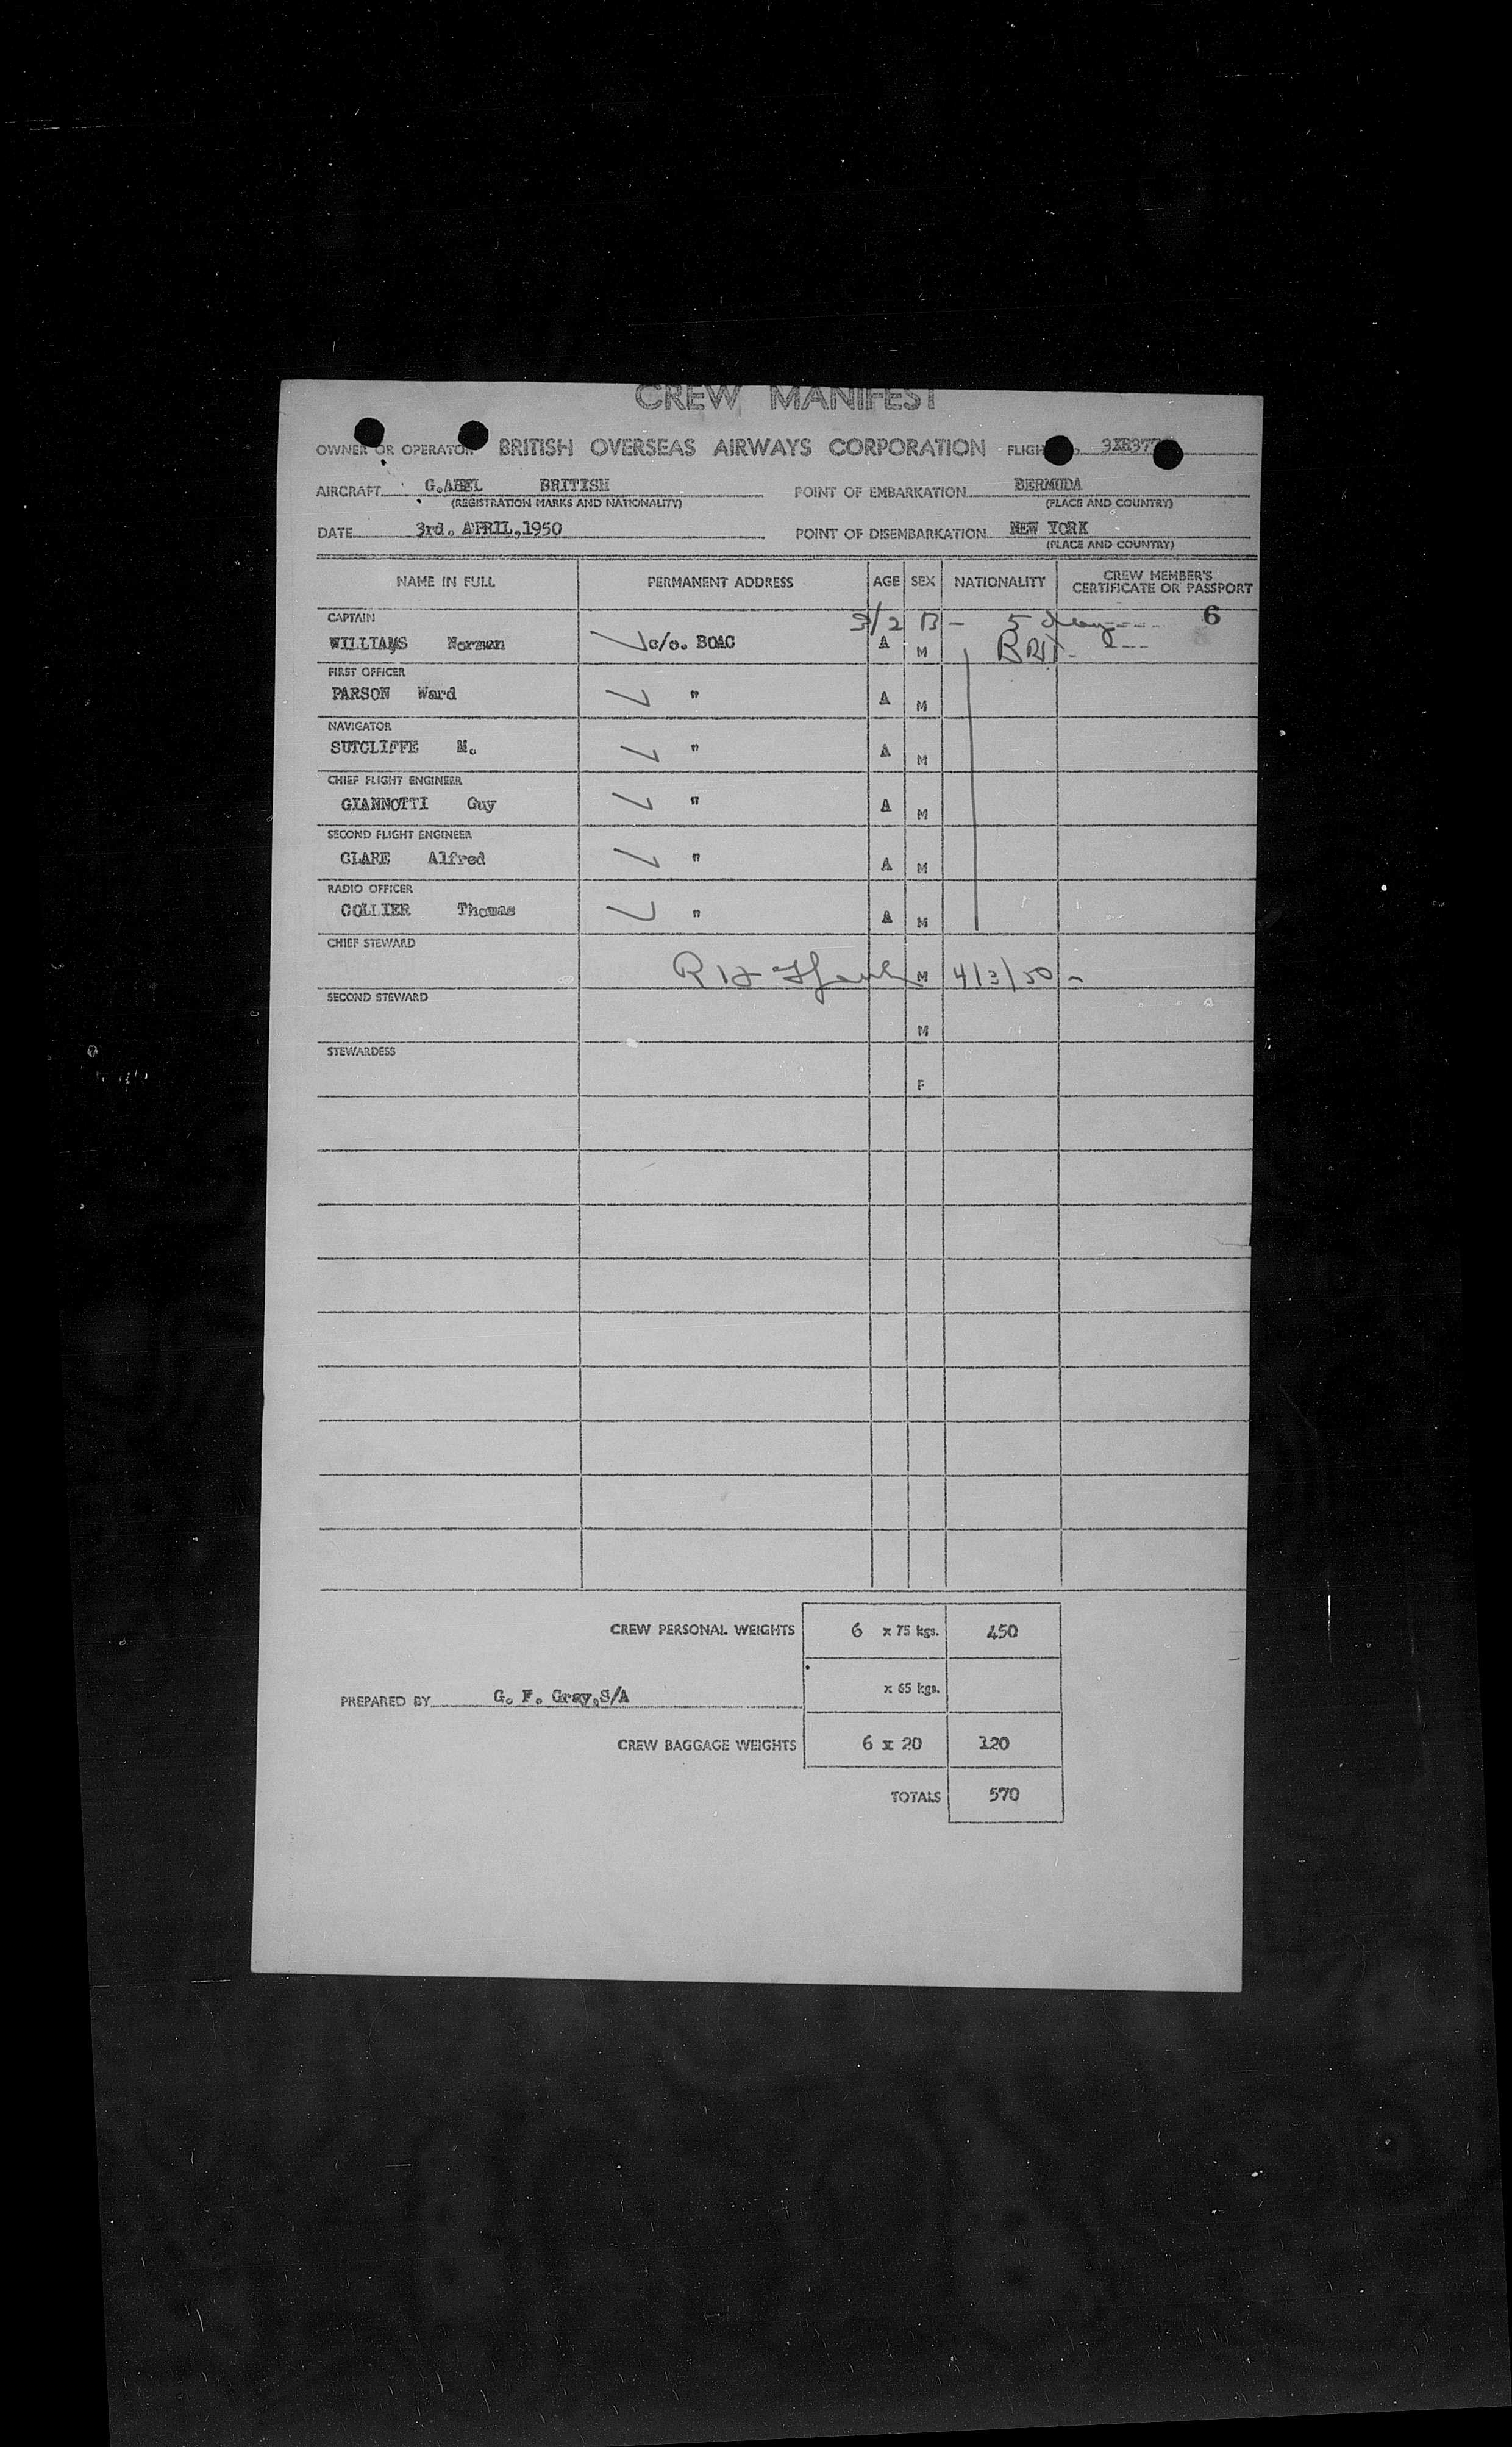 CREW MANIFEST
OWNER OR OPERATOR BRITISH OVERSEAS AIRWAYS CORPORATION
AIRCRAFT BRITISH POINT OF EMBARKATION BERMUDA
(REGISTRATION MARKS AND NATIONALITY) (PLACE AND COUNTRY)
DATE 3rd. APRIL,1950 POINT OF DISEMBARKATION NEW YORK
(PLACE AND COUNTRY)
NAME IN FULL PERMANENT ADDRESS AGE SEX NATIONALITY CREW MEMBER'S CERTIFICATE OR PASSPORT
CAPTAIN 6
WILLIAMS Norman c/o. BOAC A M
FIRST OFFICER
PARSON Ward " A M
NAVIGATOR
SUTCLIFFE " A M
CHIEF FLIGHT ENGINEER
GIANNOTTI Guy " A M
SECOND FLIGHT ENGINEER
CLARE Alfred " A M
RADIO OFFICER
COLLIER Thomas " A M
CHIEF STEWARD
M 4/3/50 -
SECOND STEWARD
M
STEWARDESS
F
CREW PERSONAL WEIGHTS 6 x 75 kgs. 450
x 65 kgs.
PREPARED BY G. F. Gray,S/A
CREW BAGGAGE WEIGHTS 6 x 20 120
TOTALS 570